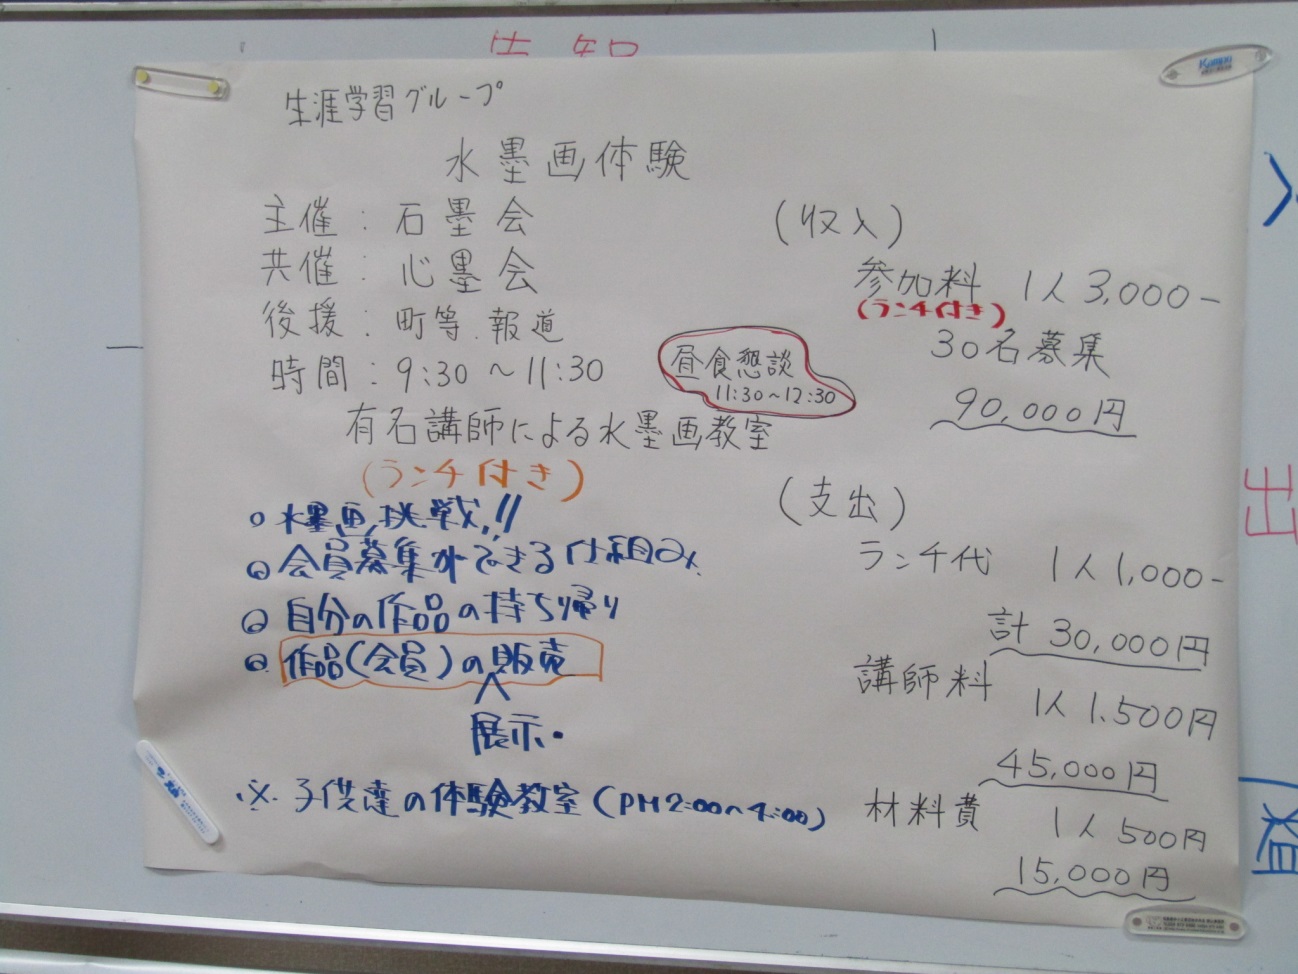 告知
生涯学習グループ
水墨画体験
主催：石墨会
共催：心墨会
後援：町等.報道
時間：9:30～11:30
昼食懇談
11:30～12:30
有名講師による水墨画教室
(ランチ付き)
○水墨画,挑戦,!!
◎会員募集ができる仕組み.
◎自分の作品の持ち帰り
◎作品(会員)の販売
展示・
※.子供達の体験教室(PM2:00～4:00)
(収入)
参加料 1人3,000-
(ランチ付き)
30名募集
90,000円
(支出)
ランチ代 1人1,000-
計 30,000円
講師料 1人1.500円
45,000円
材料費 1人500円
15,000円
出